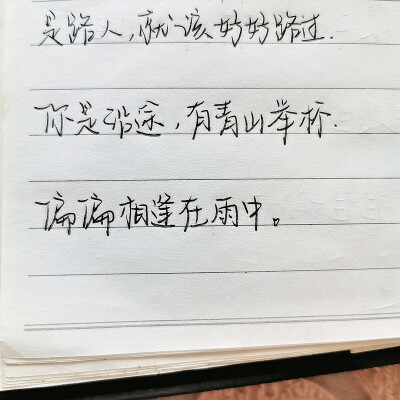 是路人，就该好好路过.
你是沿途，有青山举杯.
偏偏相逢在雨中。